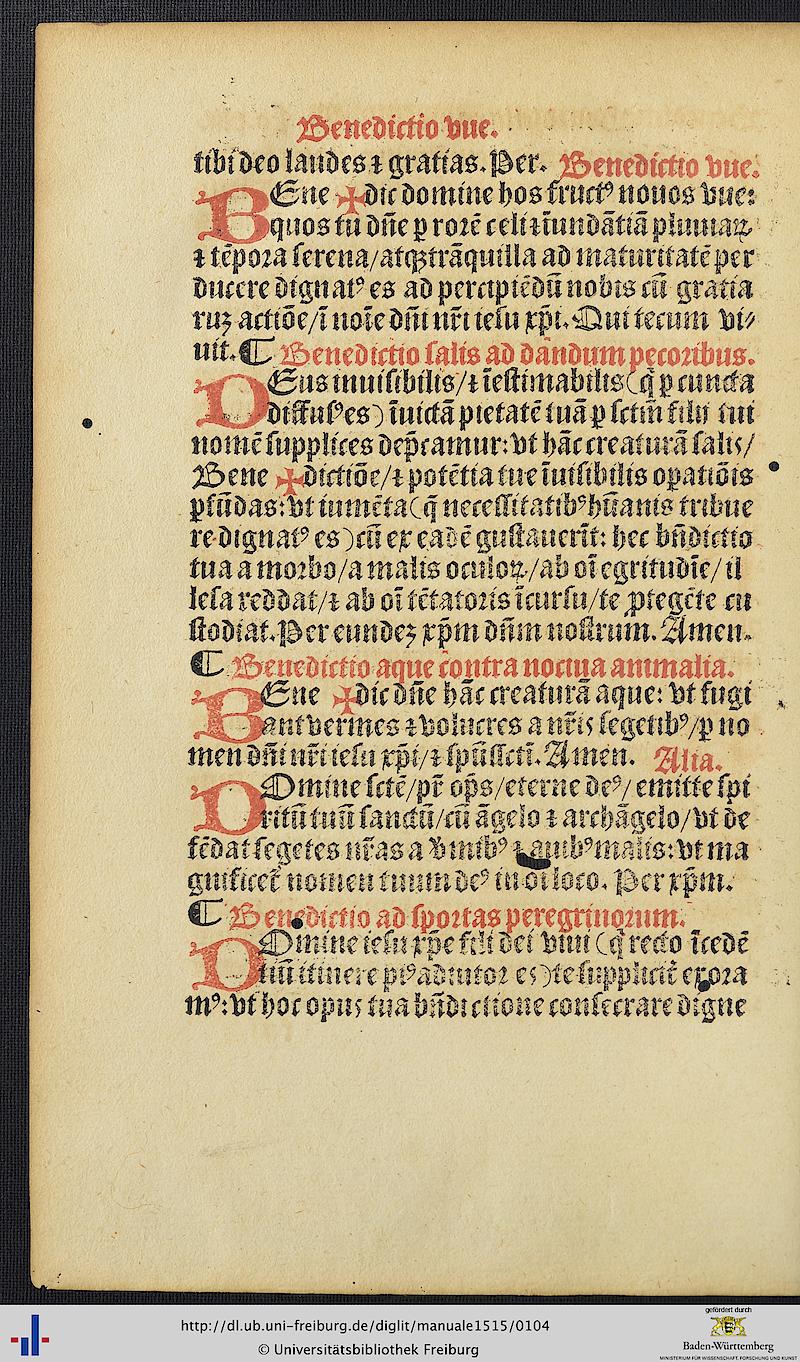 Benedictio vue.
tibi deo laudes ⁊ gratias. Per. Benedictio vue.
BEne ✠dic domine hos fructꝰ nouos vue:
quos tu dn̄e ꝑ rorē celi ⁊ īundātiā pluuiaꝝ.
⁊ tēpora serena/atqꝫ trāquilla ad maturitatē per
ducere dignatꝰ es ad percipiēdū nobis cū gratia
ruꝫ actiōe/ī noīe dn̄i nr̄i iesu xp̄i. Qui tecum vi⸗
uit. ¶ Benedictio salis ad dandum pecoribus.
DEus inuisibilis/⁊ īestimabilis (q̄ ꝑ cuncta
diffusꝰ es) īuictā pietatē tuā ꝑ sctm̄ filij tui
nomē supplices dep̄camur: vt hāc creaturā salis/
Bene ✠dictiōe/⁊ potētia tue īuisibilis oꝑatiōis
ꝓfūdas: vt iumēta (q̄ necessitatibꝰ hūanis tribue
re dignatꝰ es) cū ex eadē gustauerīt: hec bn̄dictio
tua a morbo/a malis oculoꝝ/ab oī egritudīe/il
lesa reddat/⁊ ab oī tētatoris īcursu/te ꝓtegēte cu
stodiat. Per eundeꝫ xp̄m dn̄m nostrum. Amen.
¶ Benedictio aque contra nociua animalia.
BEne ✠dic dn̄e hāc creaturā aque: vt fugi
ant vermes ⁊ volucres a nr̄is segetibꝰ/ꝑ no
men dn̄i nr̄i iesu xp̄i/⁊ spūssctī. Amen. Alia.
DOmine sctē/pr̄ op̄s/eterne deꝰ/emitte spi
ritū tuū sanctū/cū āgelo ⁊ archāgelo/vt de
fēdat segetes nr̄as a v̄mibꝰ ⁊ auibꝰ malis: vt ma
gnificet̄ nomen tuum deꝰ in oī loco. Per xp̄m.
¶ Benedictio ad sportas peregrinorum.
DOmine iesu xp̄e fili dei viui (q̄ recto īcedē
tiū itinere piꝰ adiutor es) te suppliciť exora
mꝰ: vt hoc opus tua bn̄dictione consecrare digne
http://dl.ub.uni-freiburg.de/diglit/manuale1515/0104
© Universitätsbibliothek Freiburg
gefördert durch
Baden-Württemberg
MINISTERIUM FÜR WISSENSCHAFT, FORSCHUNG UND KUNST